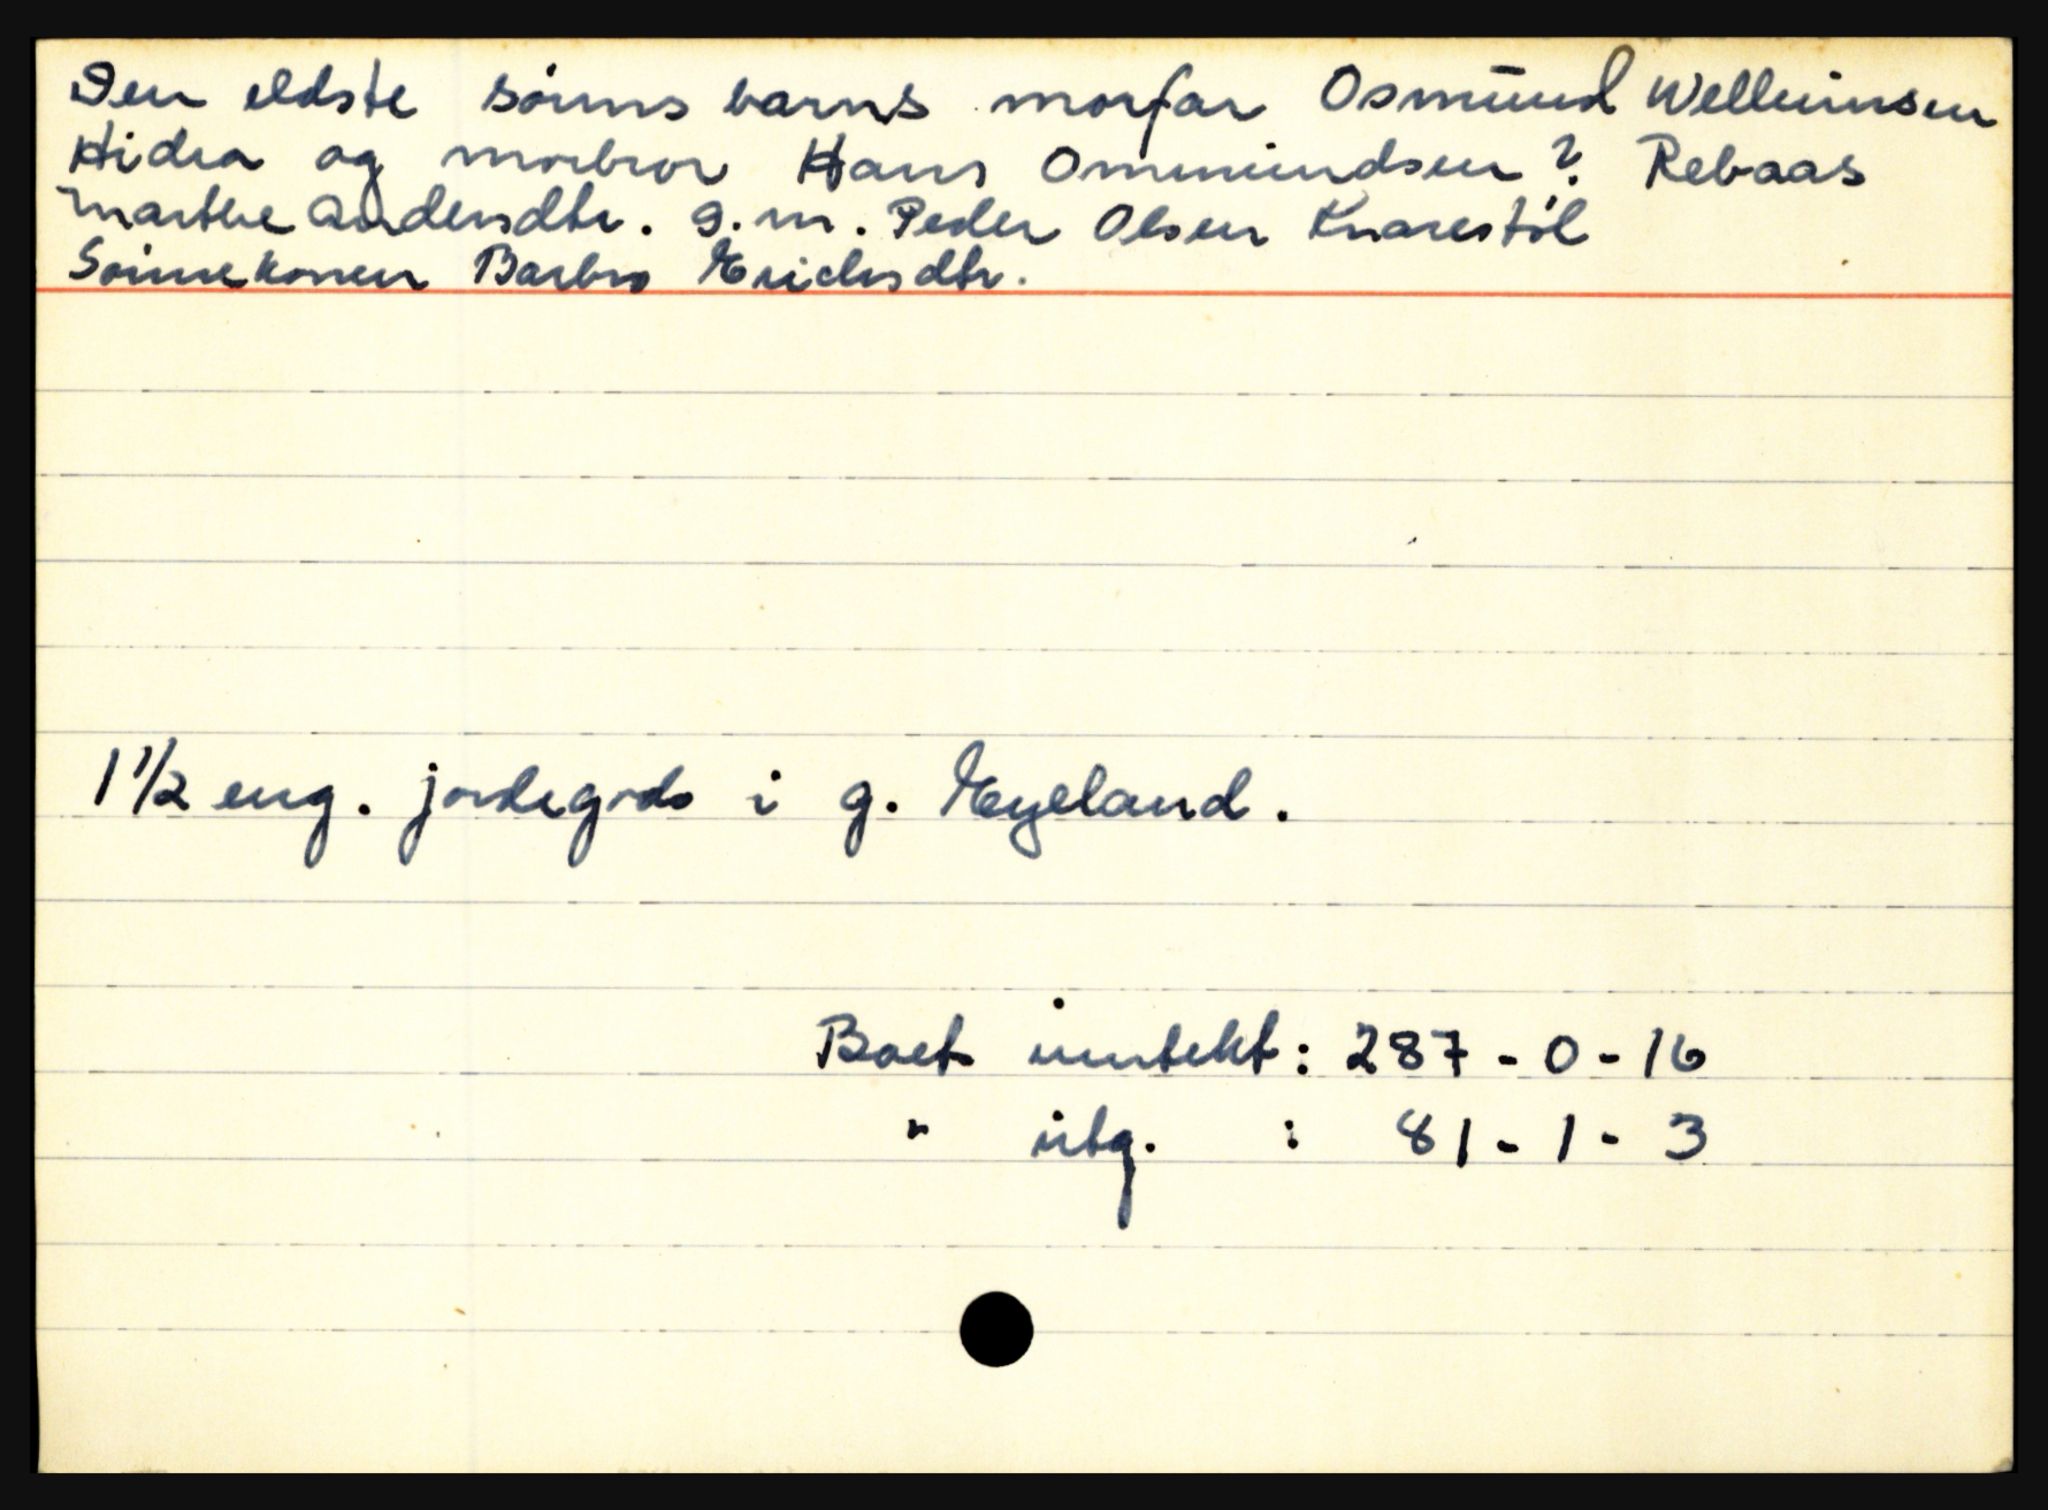 Den eldste sönns barns morfar Osmund Welleimsen
Hidra og morbror Hans Ommundsen? Rebaas
Marthe Andersdtr. g.m. Peder Olsen Knarestöl
Sönnekonen Barbro Erichsdtr.
1 1/2 eng. jordegods i g. Eyeland.
Boets inntekt: 287 - 0 - 16
" utg. : 81 - 1 - 3